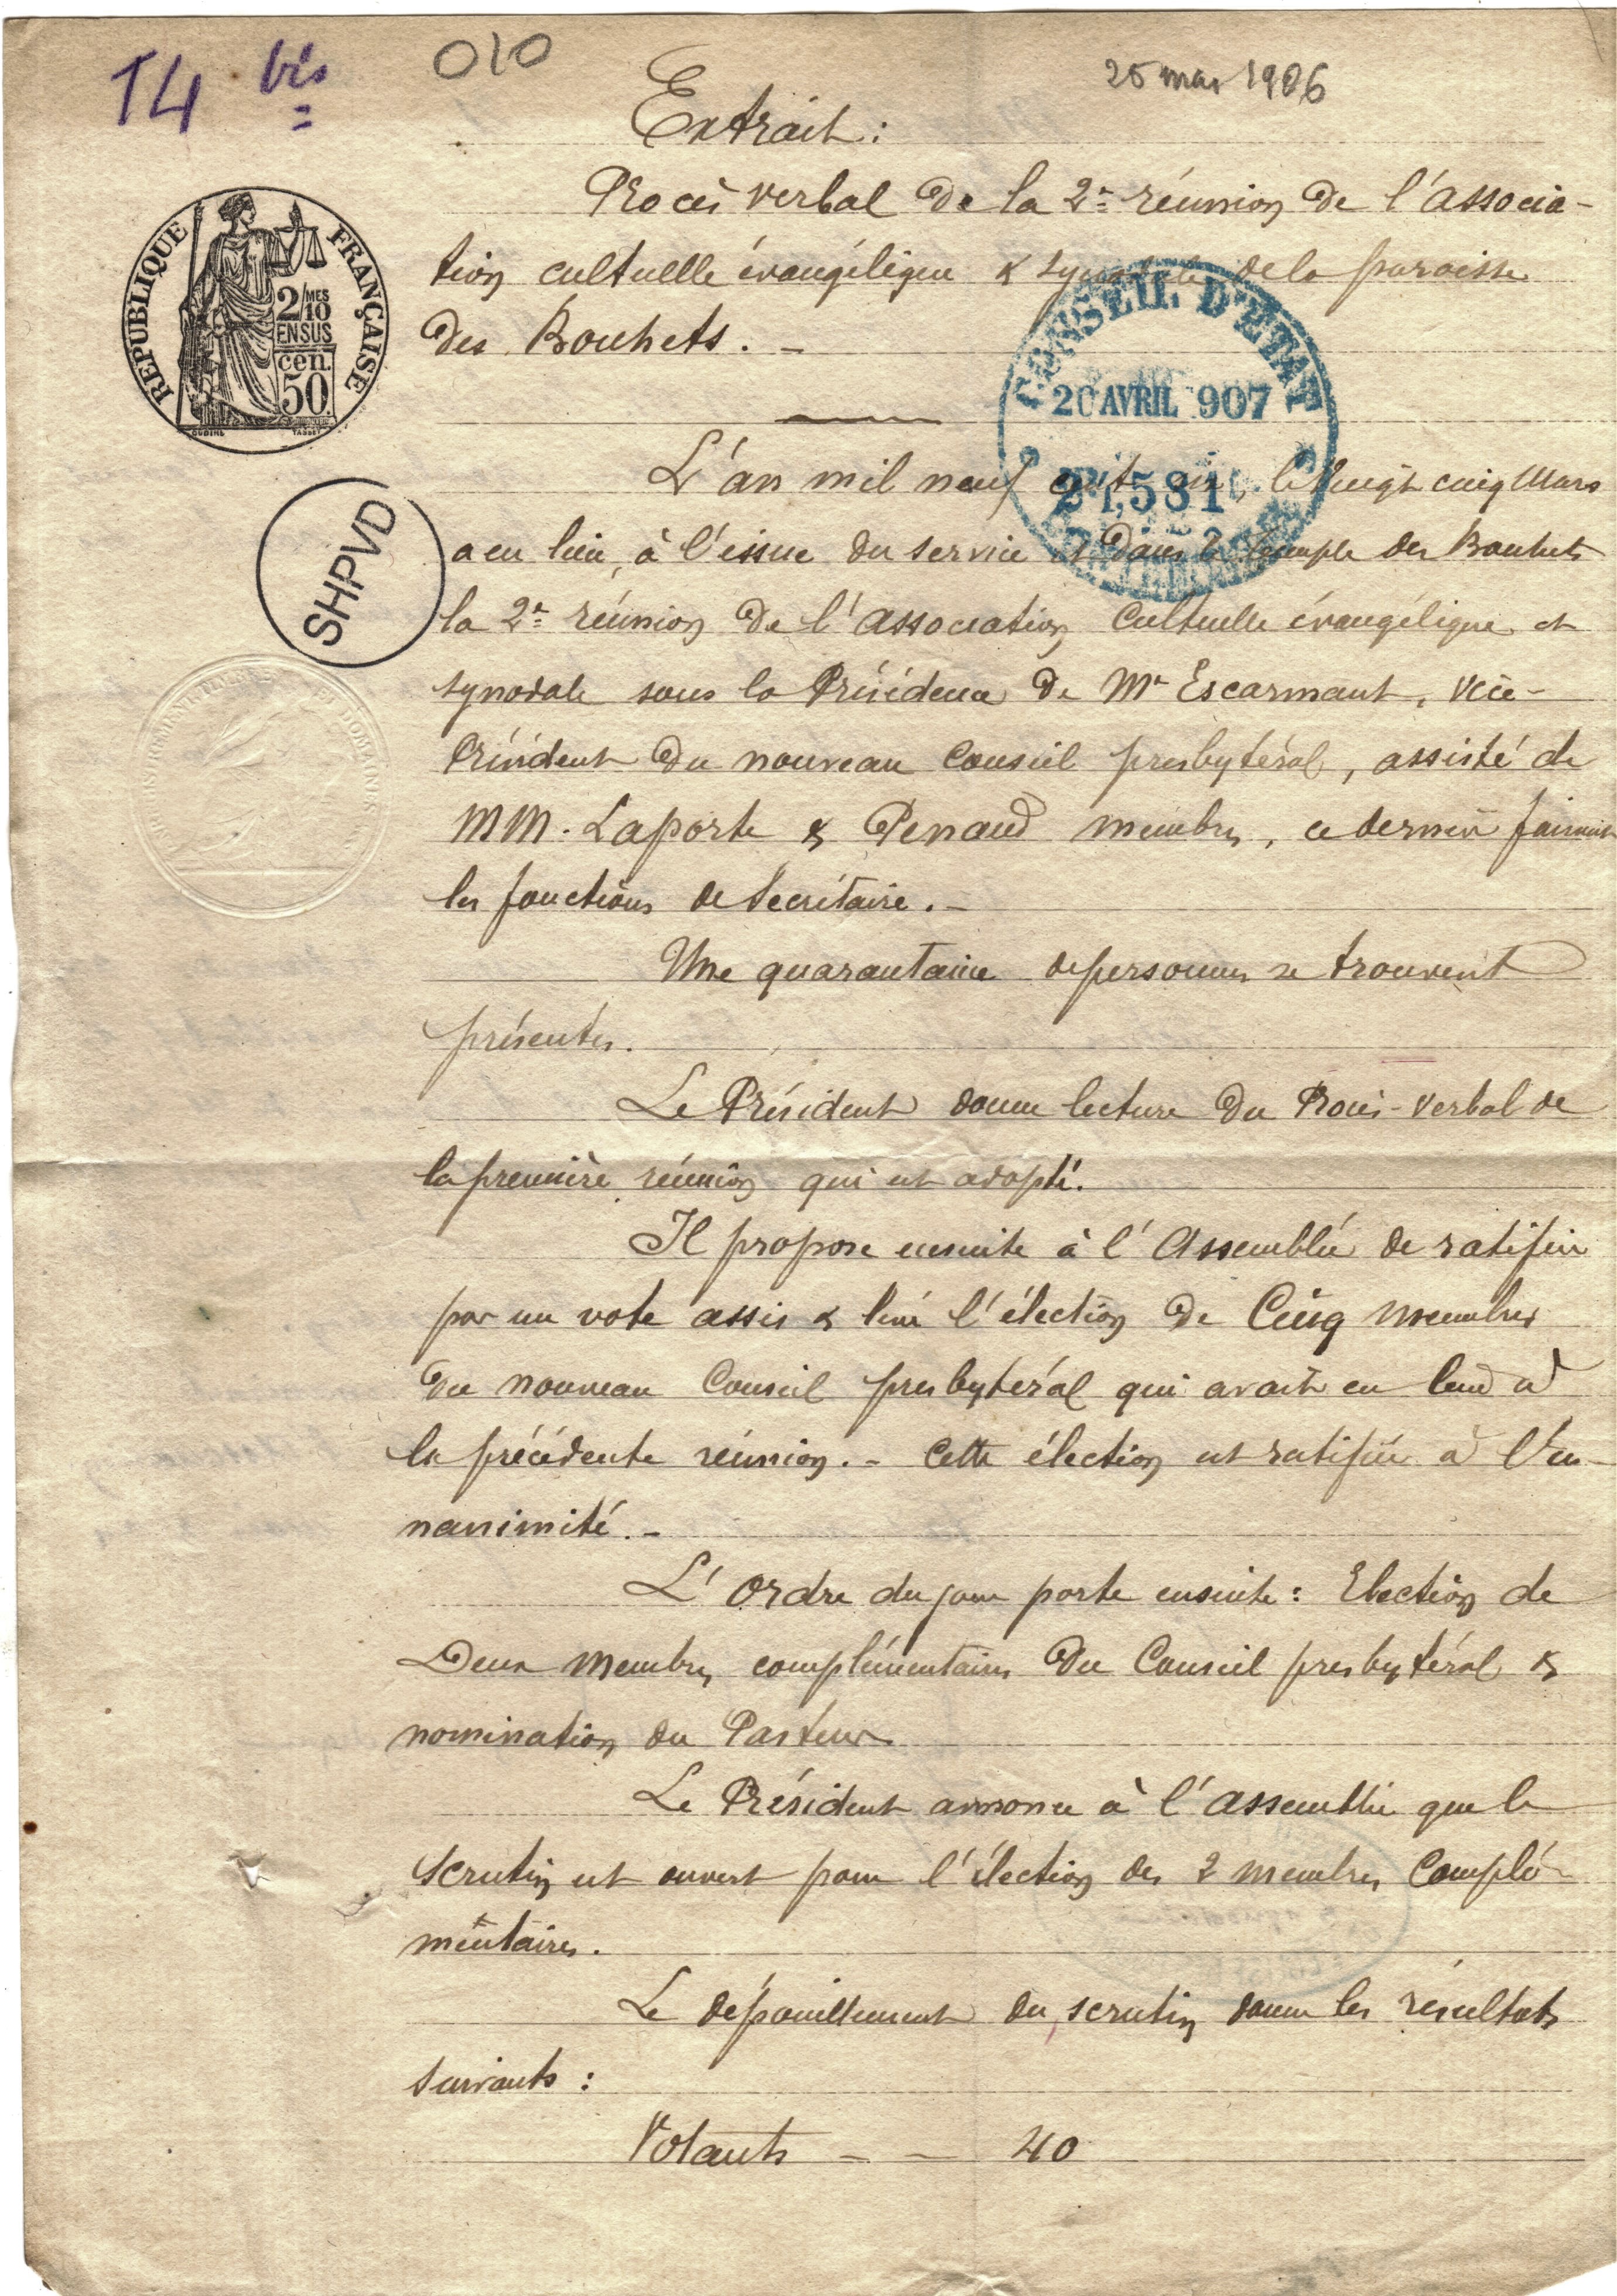 14 bis
010
25 mar 1906
Extrait :
Procès verbal de la 2e réunion de l'associa-
tion cultuelle évangélique & synodale de la paroisse
des Bouhets. -
REPUBLIQUE FRANÇAISE
2/10 MES
EN SUS
cen.
50
CONSEIL D'ETAT
20 AVRIL 907
21,581
L'an mil neuf cent six, le vingt cinq Mars
a eu lieu, à l'issue du service et dans le temple des Bouhets
SHPVD
la 2e réunion de l'association cultuelle évangélique et
synodale sous la Présidence de Mr Escarmant, vice-
Président du nouveau Conseil presbytéral, assisté de
MM. Laporte & Penaud membres, ce dernier faisant
les fonctions de Secrétaire. -
Une quarantaine de personnes se trouvent
présentes.
Le Président donne lecture du Procès-verbal de
la première réunion qui est adopté.
Il propose ensuite à l'Assemblée de ratifier
par un vote assis & levé l'élection de Cinq membres
du nouveau Conseil presbytéral qui avait eu lieu à
la précédente réunion. - Cette élection est ratifiée à l'u-
nanimité. -
L'Ordre du jour porte ensuite : Election de
Deux membres complémentaires du Conseil presbytéral &
nomination du Pasteur
Le Président annonce à l'assemblée que le
scrutin est ouvert pour l'élection des 2 membres complé-
mentaires.
Le dépouillement du scrutin donne les résultats
suivants :
Votants - - 40